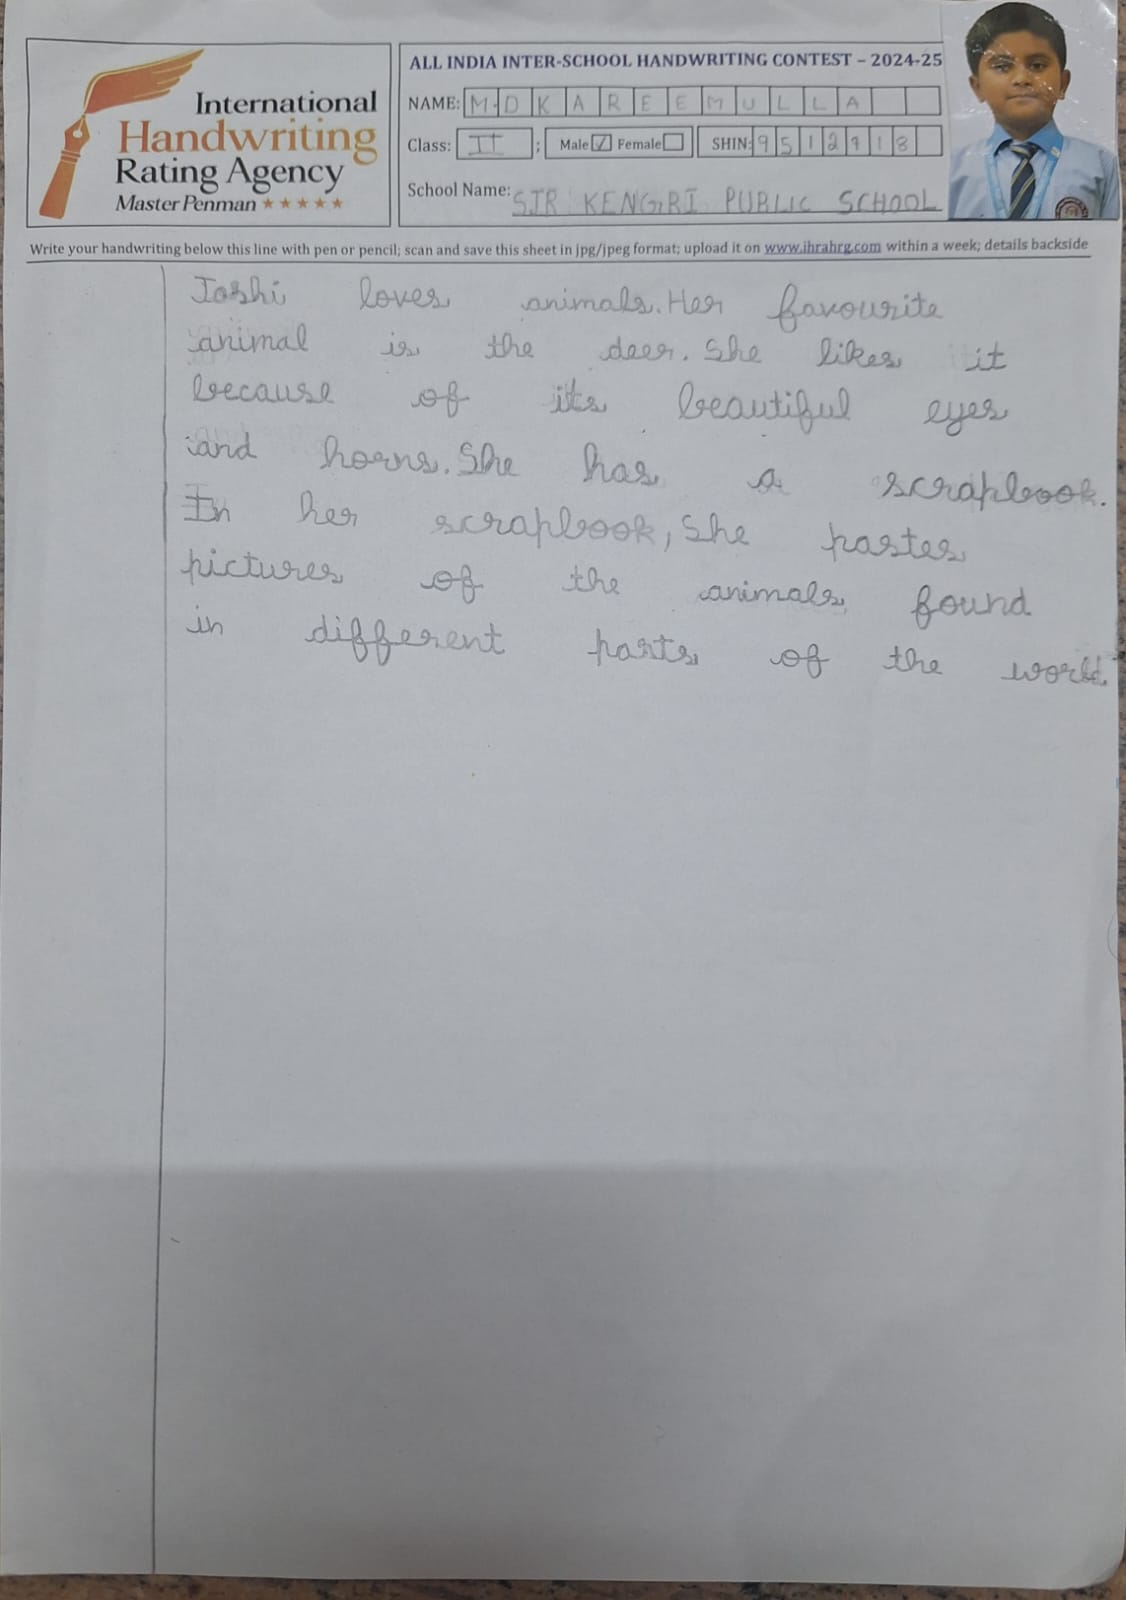 International
Handwriting
Rating Agency
Master Penman ★★★★★
ALL INDIA INTER-SCHOOL HANDWRITING CONTEST – 2024-25
NAME: M.D KAREEMULLA
Class: II ; Male ☑ Female ☐ SHIN: 9512918
School Name: SJR KENGRI PUBLIC SCHOOL
Write your handwriting below this line with pen or pencil; scan and save this sheet in jpg/jpeg format; upload it on www.ihrahrg.com within a week; details backside
Joshi loves animals. Her favourite
animal is the deer. She likes it
because of its beautiful eyes
and horns. She has a scrapbook.
In her scrapbook, She pastes
pictures of the animals found
in different parts of the world.